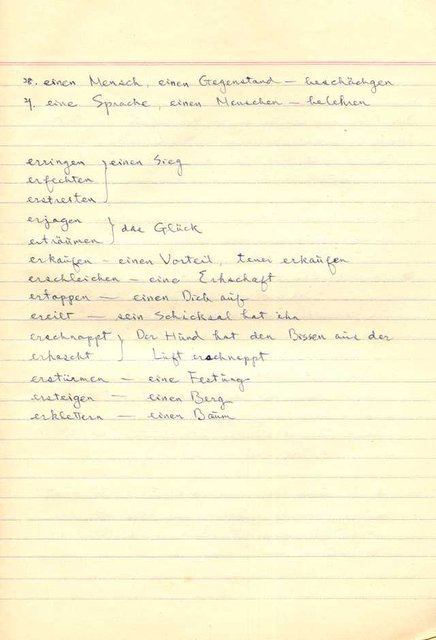 28. einen Mensch, einen Gegenstand – beschädigen
29. eine Sprache, einen Menschen – belehren
erringen } einen Sieg
erfechten
erstreiten
erjagen } das Glück
erträumen
erkaufen – einen Vorteil, teuer erkaufen
erschleichen – eine Erbschaft
ertappen – einen Dieb auf
ereilt – sein Schicksal hat ihn
erschnappt } Der Hund hat den Bissen aus der
erhascht Luft erschnappt
erstürmen – eine Festung
ersteigen – einen Berg
erklettern – einen Baum